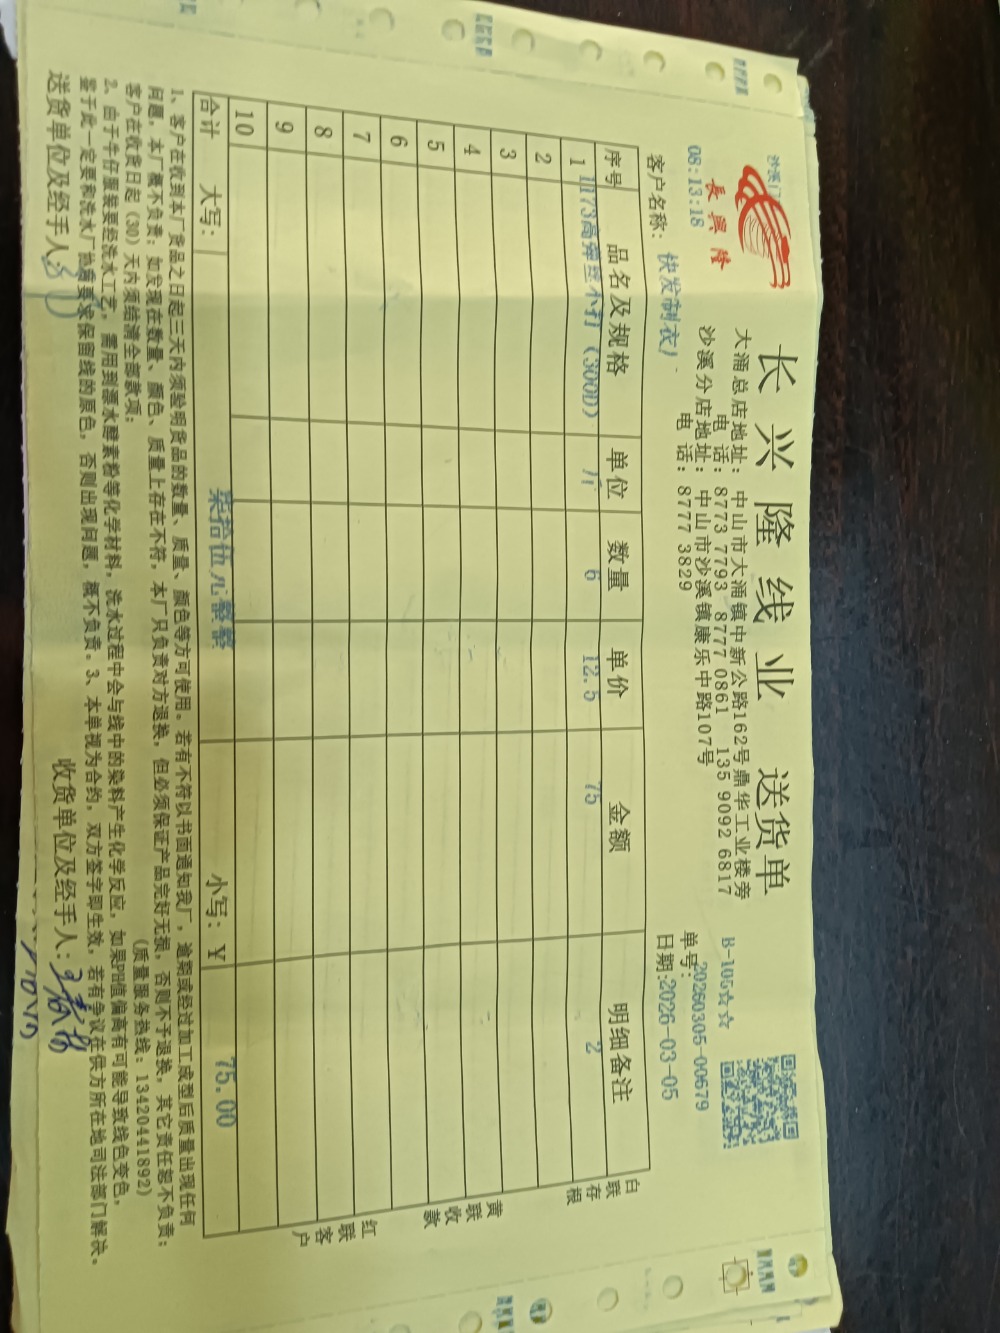 长兴隆线业 送货单
長興隆
大涌总店地址：中山市大涌镇中新公路162号鼎华工业楼旁
电 话：8773 7793 8777 0861 135 9092 6817
沙溪分店地址：中山市沙溪镇康乐中路107号
电 话：8777 3829
沙溪门
08:13:18
B-105☆☆
单号：20260305-00679
客户名称：快发制衣厂
日期:2026-03-05
序号 品名及规格 单位 数量 单价 金额 明细备注
1 高弹丝 (300D) 6 12.5 75 2
2
3
4
5
6
7
8
9
10
合计 大写：柒拾伍元整 小写：￥ 75.00
白联存根
黄联收款
红联客户
1、客户在收到本厂货品之日起三天内须验明货品的数量、质量、颜色等方可使用。若有不符以书面通知我厂，逾期或经过加工成型后质量出现任何
问题，本厂概不负责；如发现在数量、颜色、质量上存在不符，本厂只负责对方退换，但必须保证产品完好无损，否则不予退换，其它责任恕不负责；
客户在收货日起（30）天内须结清全部款项； (质量服务热线：13420441892)
2、由于牛仔服装要经洗水工艺，需用到漂水酵素粉等化学材料，洗水过程中会与线中的染料产生化学反应，如果PH值偏高有可能导致线色变色，
鉴于此一定要和洗水厂 要求保留线的原色，否则出现问题，概不负责。3、本单视为合约，双方签字即生效，若有争议在供方所在地司法部门解决。
送货单位及经手人： 收货单位及经手人：